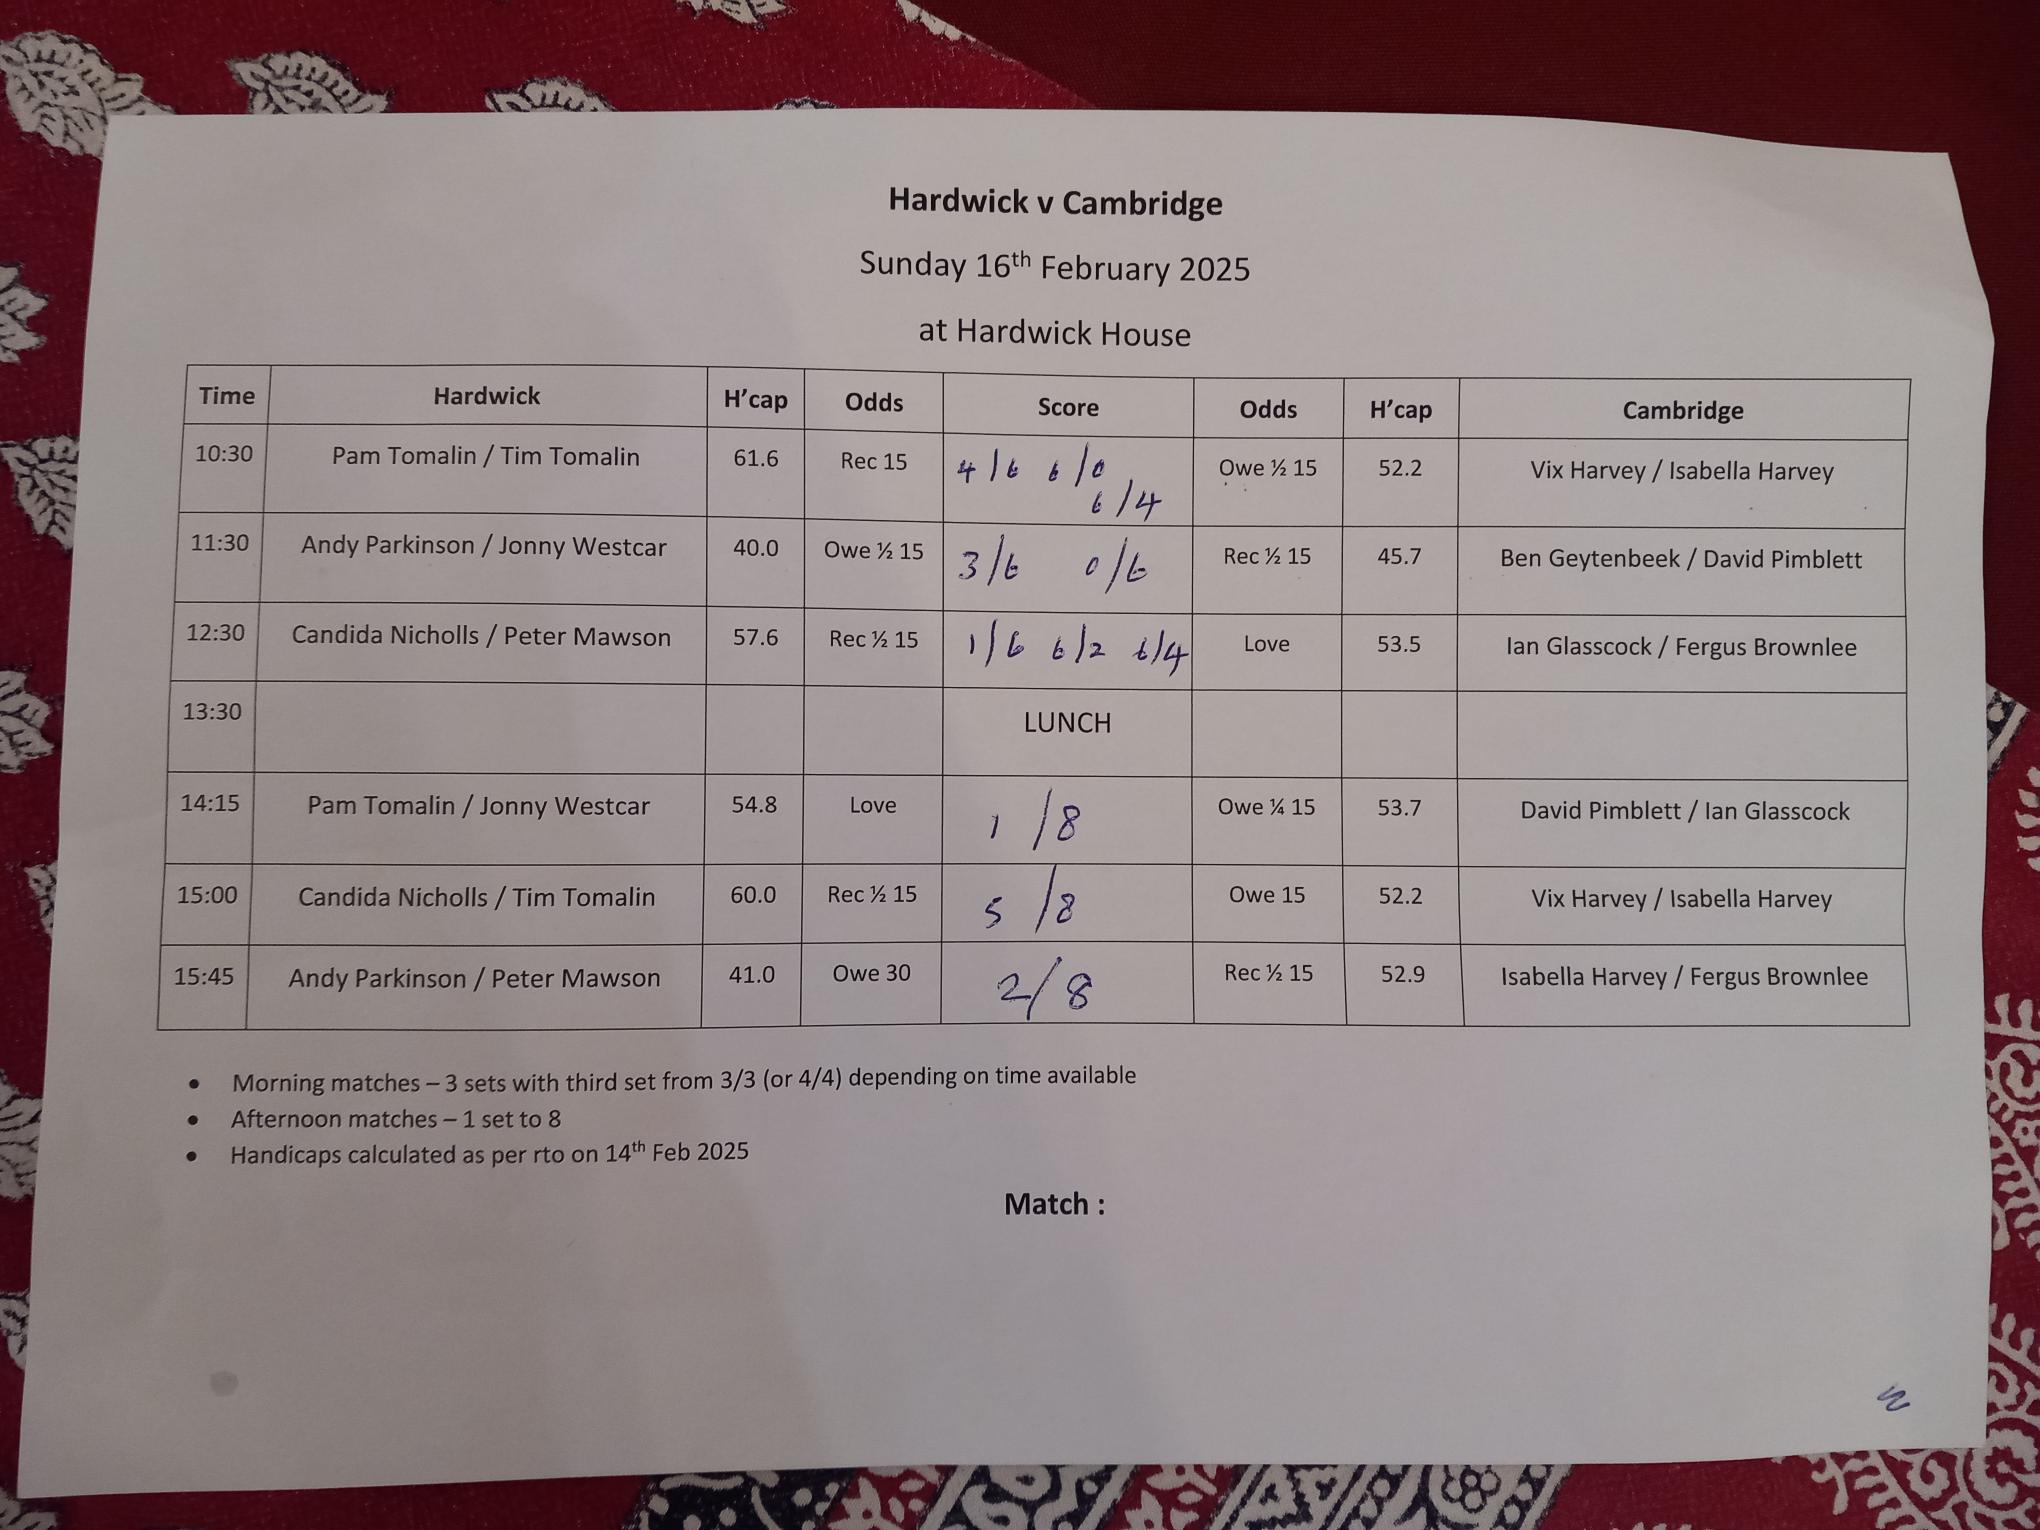 Hardwick v Cambridge
Sunday 16th February 2025
at Hardwick House
Time Hardwick H'cap Odds Score Odds H'cap Cambridge
10:30 Pam Tomalin / Tim Tomalin 61.6 Rec 15 4/6 6/0 6/4 Owe ½ 15 52.2 Vix Harvey / Isabella Harvey
11:30 Andy Parkinson / Jonny Westcar 40.0 Owe ½ 15 3/6 0/6 Rec ½ 15 45.7 Ben Geytenbeek / David Pimblett
12:30 Candida Nicholls / Peter Mawson 57.6 Rec ½ 15 1/6 6/2 6/4 Love 53.5 Ian Glasscock / Fergus Brownlee
13:30 LUNCH
14:15 Pam Tomalin / Jonny Westcar 54.8 Love 1/8 Owe ¼ 15 53.7 David Pimblett / Ian Glasscock
15:00 Candida Nicholls / Tim Tomalin 60.0 Rec ½ 15 5/8 Owe 15 52.2 Vix Harvey / Isabella Harvey
15:45 Andy Parkinson / Peter Mawson 41.0 Owe 30 2/8 Rec ½ 15 52.9 Isabella Harvey / Fergus Brownlee
• Morning matches – 3 sets with third set from 3/3 (or 4/4) depending on time available
• Afternoon matches – 1 set to 8
• Handicaps calculated as per rto on 14th Feb 2025
Match :